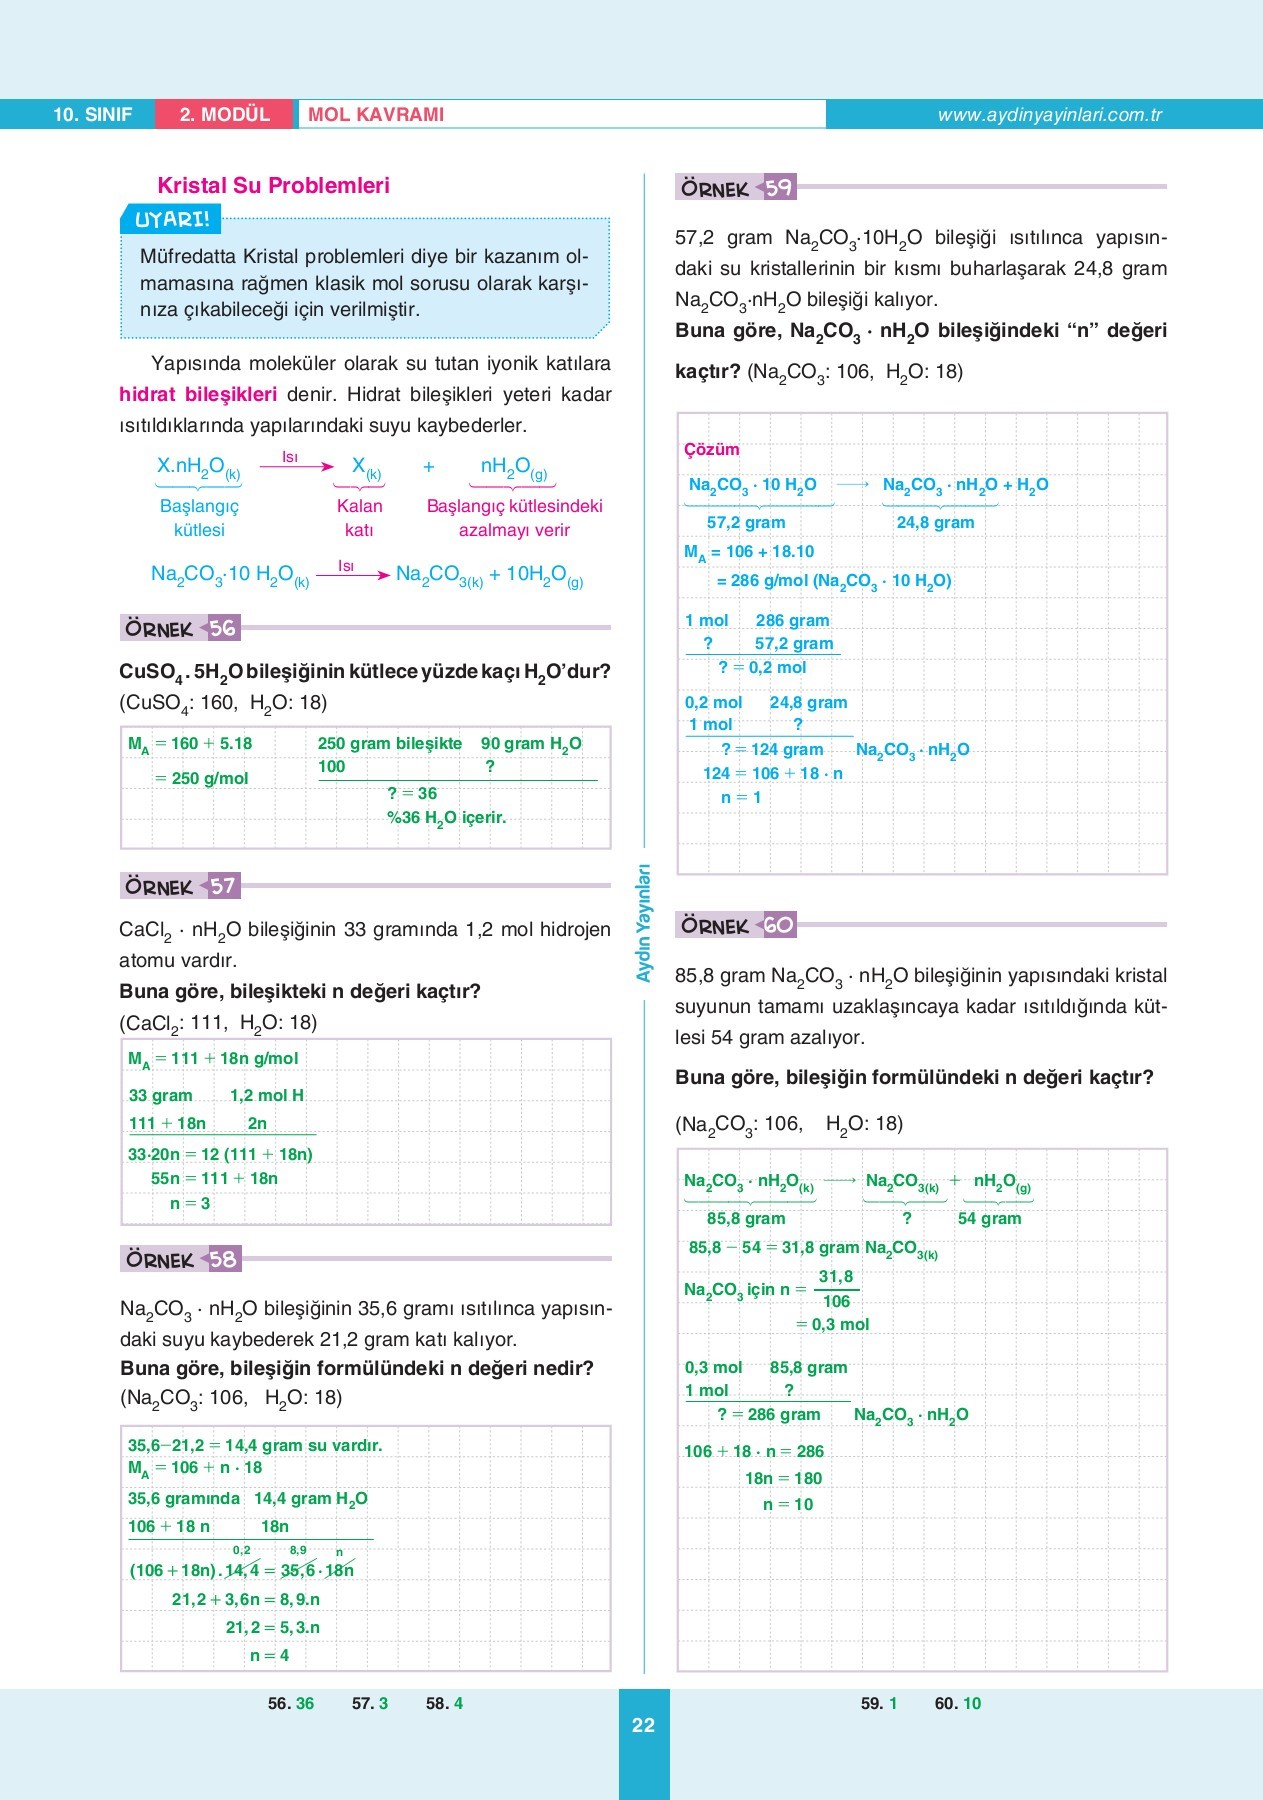 10. SINIF 2. MODÜL MOL KAVRAMI www.aydinyayinlari.com.tr
Kristal Su Problemleri
UYARI!
Müfredatta Kristal problemleri diye bir kazanım ol-
mamasına rağmen klasik mol sorusu olarak karşı-
nıza çıkabileceği için verilmiştir.
Yapısında moleküler olarak su tutan iyonik katılara
hidrat bileşikleri denir. Hidrat bileşikleri yeteri kadar
ısıtıldıklarında yapılarındaki suyu kaybederler.
X.nH₂O(k) Isı → X(k) + nH₂O(g)
Başlangıç Kalan Başlangıç kütlesindeki
kütlesi katı azalmayı verir
Na₂CO₃·10 H₂O(k) Isı → Na₂CO₃(k) + 10H₂O(g)
ÖRNEK 56
CuSO₄ . 5H₂O bileşiğinin kütlece yüzde kaçı H₂O'dur?
(CuSO₄: 160, H₂O: 18)
M_A = 160 + 5.18 250 gram bileşikte 90 gram H₂O
100 ?
= 250 g/mol
? = 36
%36 H₂O içerir.
ÖRNEK 57
CaCl₂ · nH₂O bileşiğinin 33 gramında 1,2 mol hidrojen
atomu vardır.
Buna göre, bileşikteki n değeri kaçtır?
(CaCl₂: 111, H₂O: 18)
M_A = 111 + 18n g/mol
33 gram 1,2 mol H
111 + 18n 2n
33·20n = 12 (111 + 18n)
55n = 111 + 18n
n = 3
ÖRNEK 58
Na₂CO₃ · nH₂O bileşiğinin 35,6 gramı ısıtılınca yapısın-
daki suyu kaybederek 21,2 gram katı kalıyor.
Buna göre, bileşiğin formülündeki n değeri nedir?
(Na₂CO₃: 106, H₂O: 18)
35,6–21,2 = 14,4 gram su vardır.
M_A = 106 + n · 18
35,6 gramında 14,4 gram H₂O
106 + 18 n 18n
0,2 8,9 n
(106 + 18n) . 14,4 = 35,6 · 18n
21,2 + 3,6n = 8,9.n
21,2 = 5,3.n
n = 4
56. 36 57. 3 58. 4
Aydın Yayınları
ÖRNEK 59
57,2 gram Na₂CO₃·10H₂O bileşiği ısıtılınca yapısın-
daki su kristallerinin bir kısmı buharlaşarak 24,8 gram
Na₂CO₃·nH₂O bileşiği kalıyor.
Buna göre, Na₂CO₃ · nH₂O bileşiğindeki “n” değeri
kaçtır? (Na₂CO₃: 106, H₂O: 18)
Çözüm
Na₂CO₃ · 10 H₂O → Na₂CO₃ · nH₂O + H₂O
57,2 gram 24,8 gram
M_A = 106 + 18.10
= 286 g/mol (Na₂CO₃ · 10 H₂O)
1 mol 286 gram
? 57,2 gram
? = 0,2 mol
0,2 mol 24,8 gram
1 mol ?
? = 124 gram Na₂CO₃ · nH₂O
124 = 106 + 18 · n
n = 1
ÖRNEK 60
85,8 gram Na₂CO₃ · nH₂O bileşiğinin yapısındaki kristal
suyunun tamamı uzaklaşıncaya kadar ısıtıldığında küt-
lesi 54 gram azalıyor.
Buna göre, bileşiğin formülündeki n değeri kaçtır?
(Na₂CO₃: 106, H₂O: 18)
Na₂CO₃ · nH₂O(k) → Na₂CO₃(k) + nH₂O(g)
85,8 gram ? 54 gram
85,8 – 54 = 31,8 gram Na₂CO₃(k)
Na₂CO₃ için n = 31,8
106
= 0,3 mol
0,3 mol 85,8 gram
1 mol ?
? = 286 gram Na₂CO₃ · nH₂O
106 + 18 · n = 286
18n = 180
n = 10
59. 1 60. 10
22